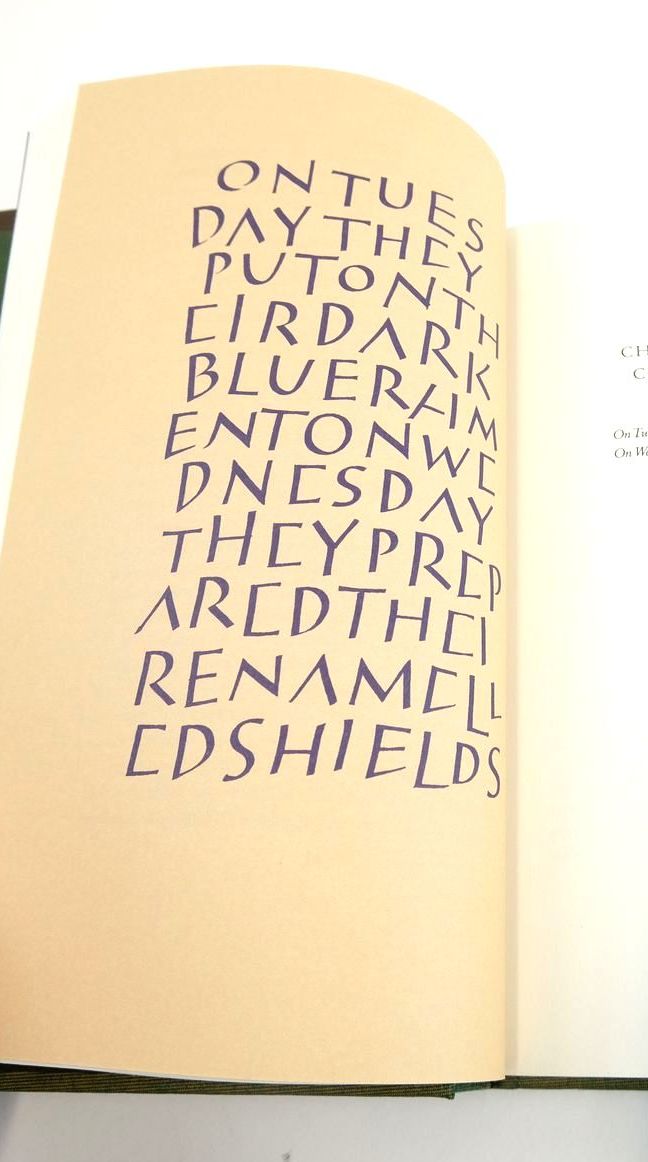 ON TUES
DAY THEY
PUT ON TH
EIR DARK
BLUE RAIM
ENT ON WE
DNESDAY
THEY PREP
ARED THEI
R ENAMELL
ED SHIELDS
CH
C
On Tu
On We